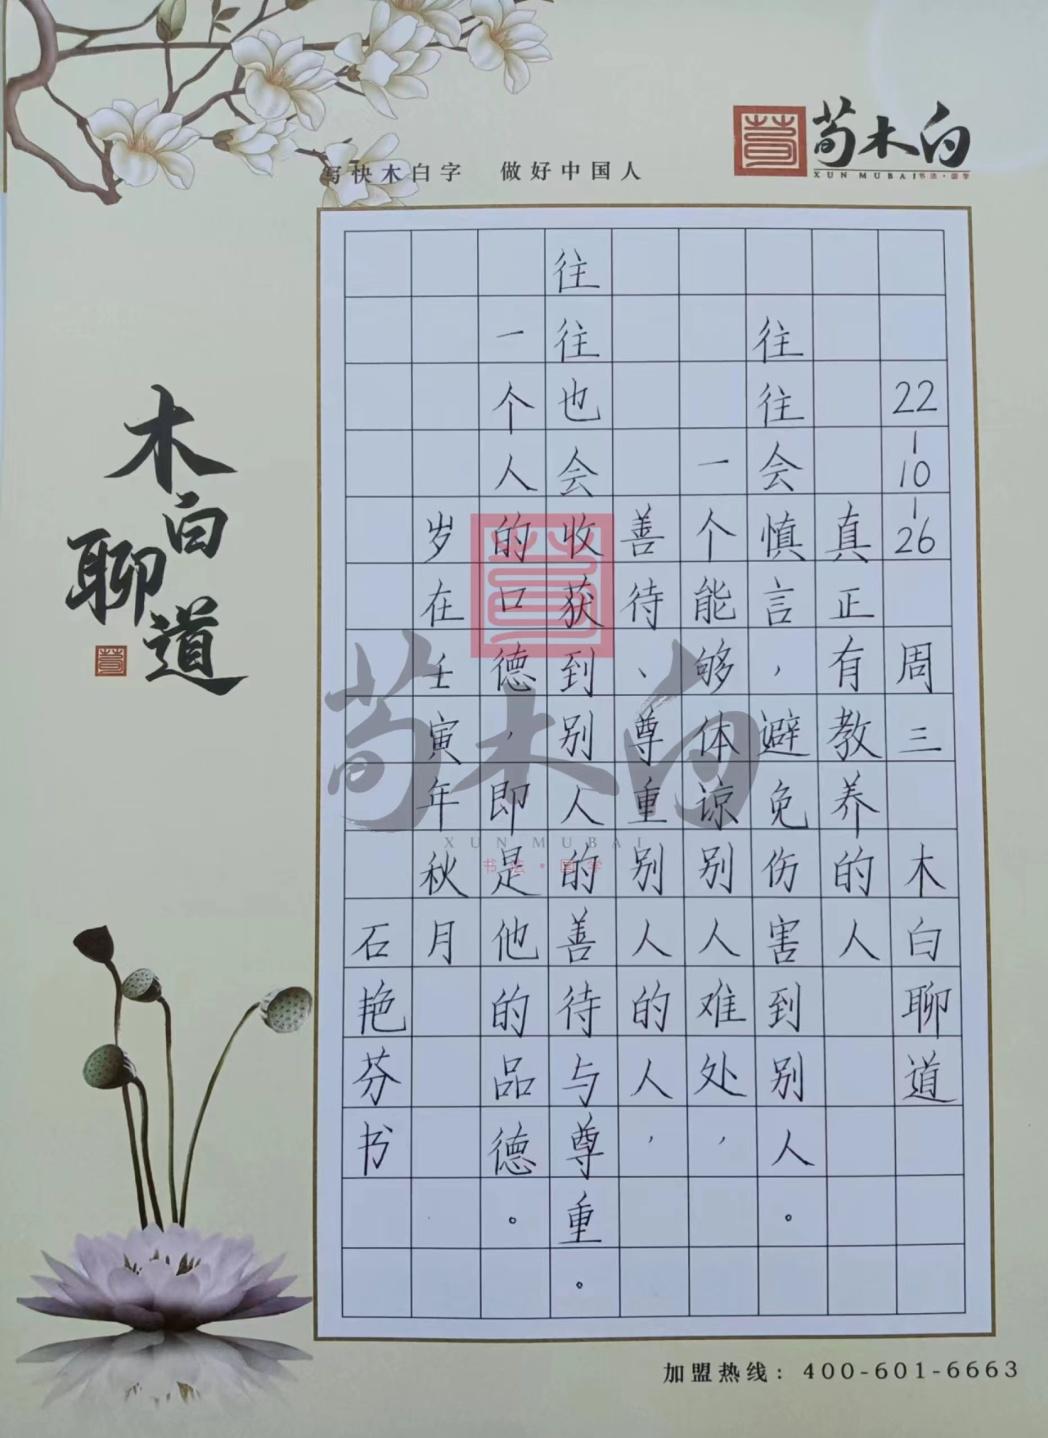 写快木白字 做好中国人
荀木白
XUN MUBAI 书法·国学
木白聊道
22-10-26 周三 木白聊道
真正有教养的人
往往会慎言，避免伤害到别人。
一个能够体谅别人难处，
善待、尊重别人的人，
往往也会收获到别人的善待与尊重。
一个人的口德，即是他的品德。
岁在壬寅年秋月
石艳芬书
荀木白
XUN MUBAI
书法·国学
加盟热线：400-601-6663